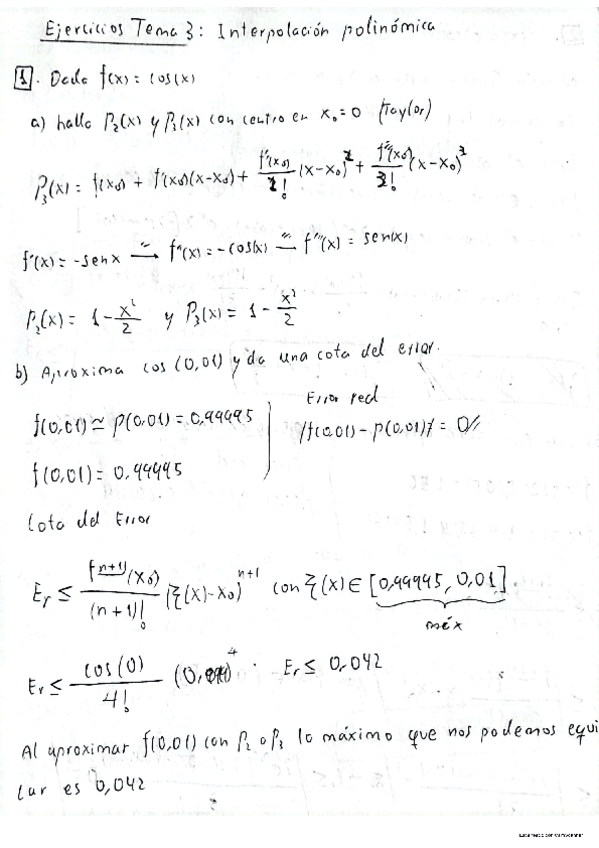 Ejercicios Tema 3: Interpolación polinómica
1. Dada f(x) = cos(x)
a) halla P₂(x) y P₃(x) con centro en x₀=0 (Taylor)
P₃(x) = f(x₀) + f'(x₀)(x-x₀) + f''(x₀)/2! (x-x₀)² + f'''(x₀)/3! (x-x₀)³
f'(x) = -senx → f''(x) = -cos(x) → f'''(x) = sen(x)
P₂(x) = 1 - x²/2 y P₃(x) = 1 - x²/2
b) Aproxima cos (0,01) y da una cota del error.
Error real
f(0,01) ≃ P(0,01) = 0,99995
/f(0,01) - P(0,01)/ = 0//
f(0,01) = 0,99995
Cota del Error
Er ≤ fⁿ⁺¹(x₀)/(n+1)! (ξ(x)-x₀)ⁿ⁺¹ con ξ(x) ∈ [0,99995, 0,01]
máx
Er ≤ cos(0)/4! ⁴ Er ≤ 0,042
Al aproximar f(0,01) con P₂ o P₃ lo máximo que nos podemos equi
car es 0,042